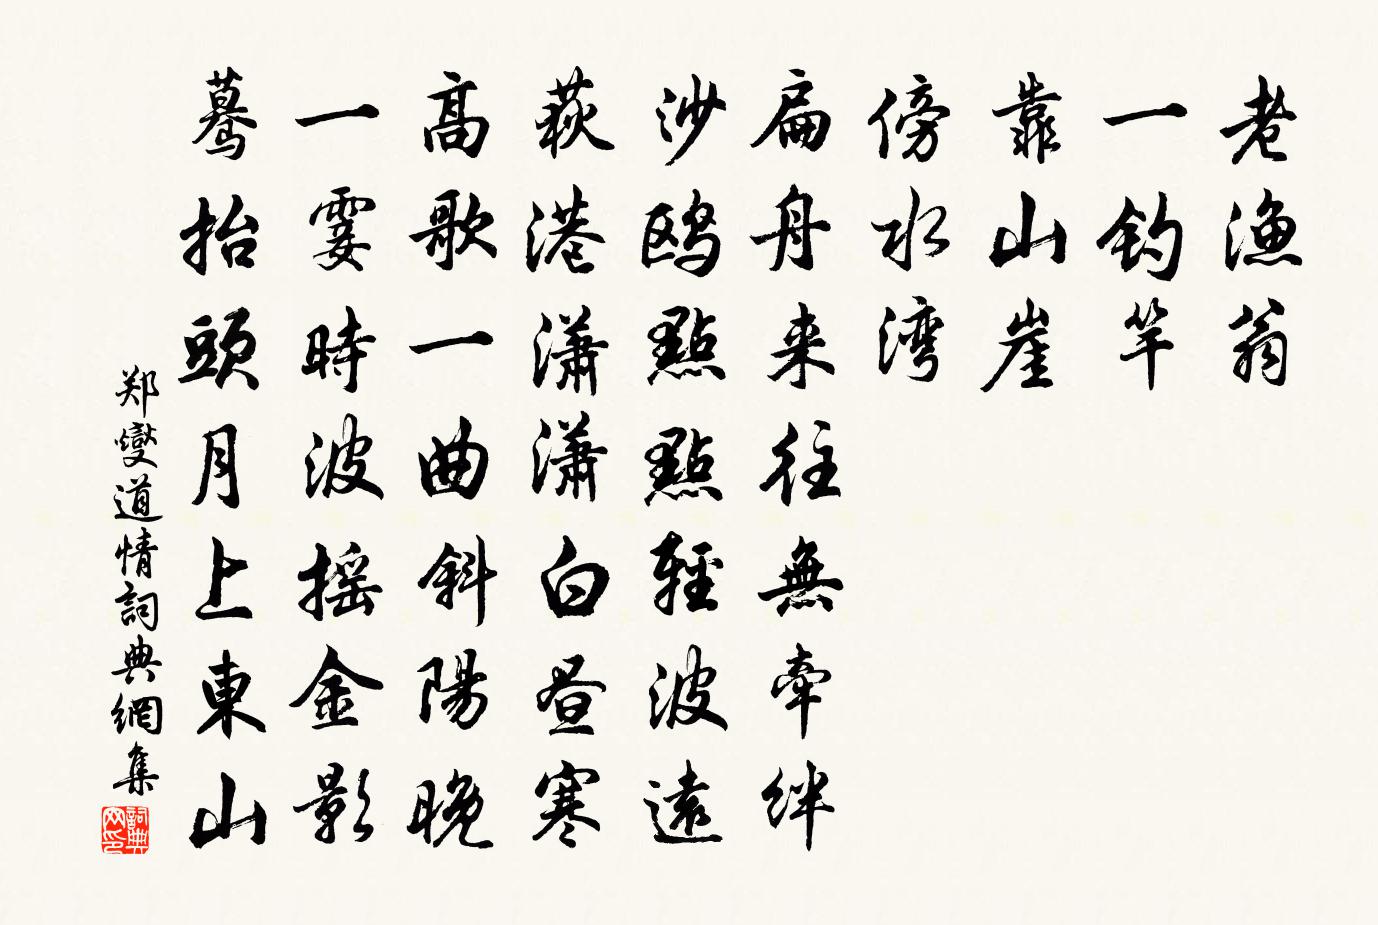 老漁翁
一釣竿
靠山崖
傍水湾
扁舟来往無牽絆
沙鸥點點輕波遠
荻港瀟瀟白昼寒
高歌一曲斜陽晚
一霎時波摇金影
蓦抬頭月上東山
郑燮道情詞典網集
詞典网印